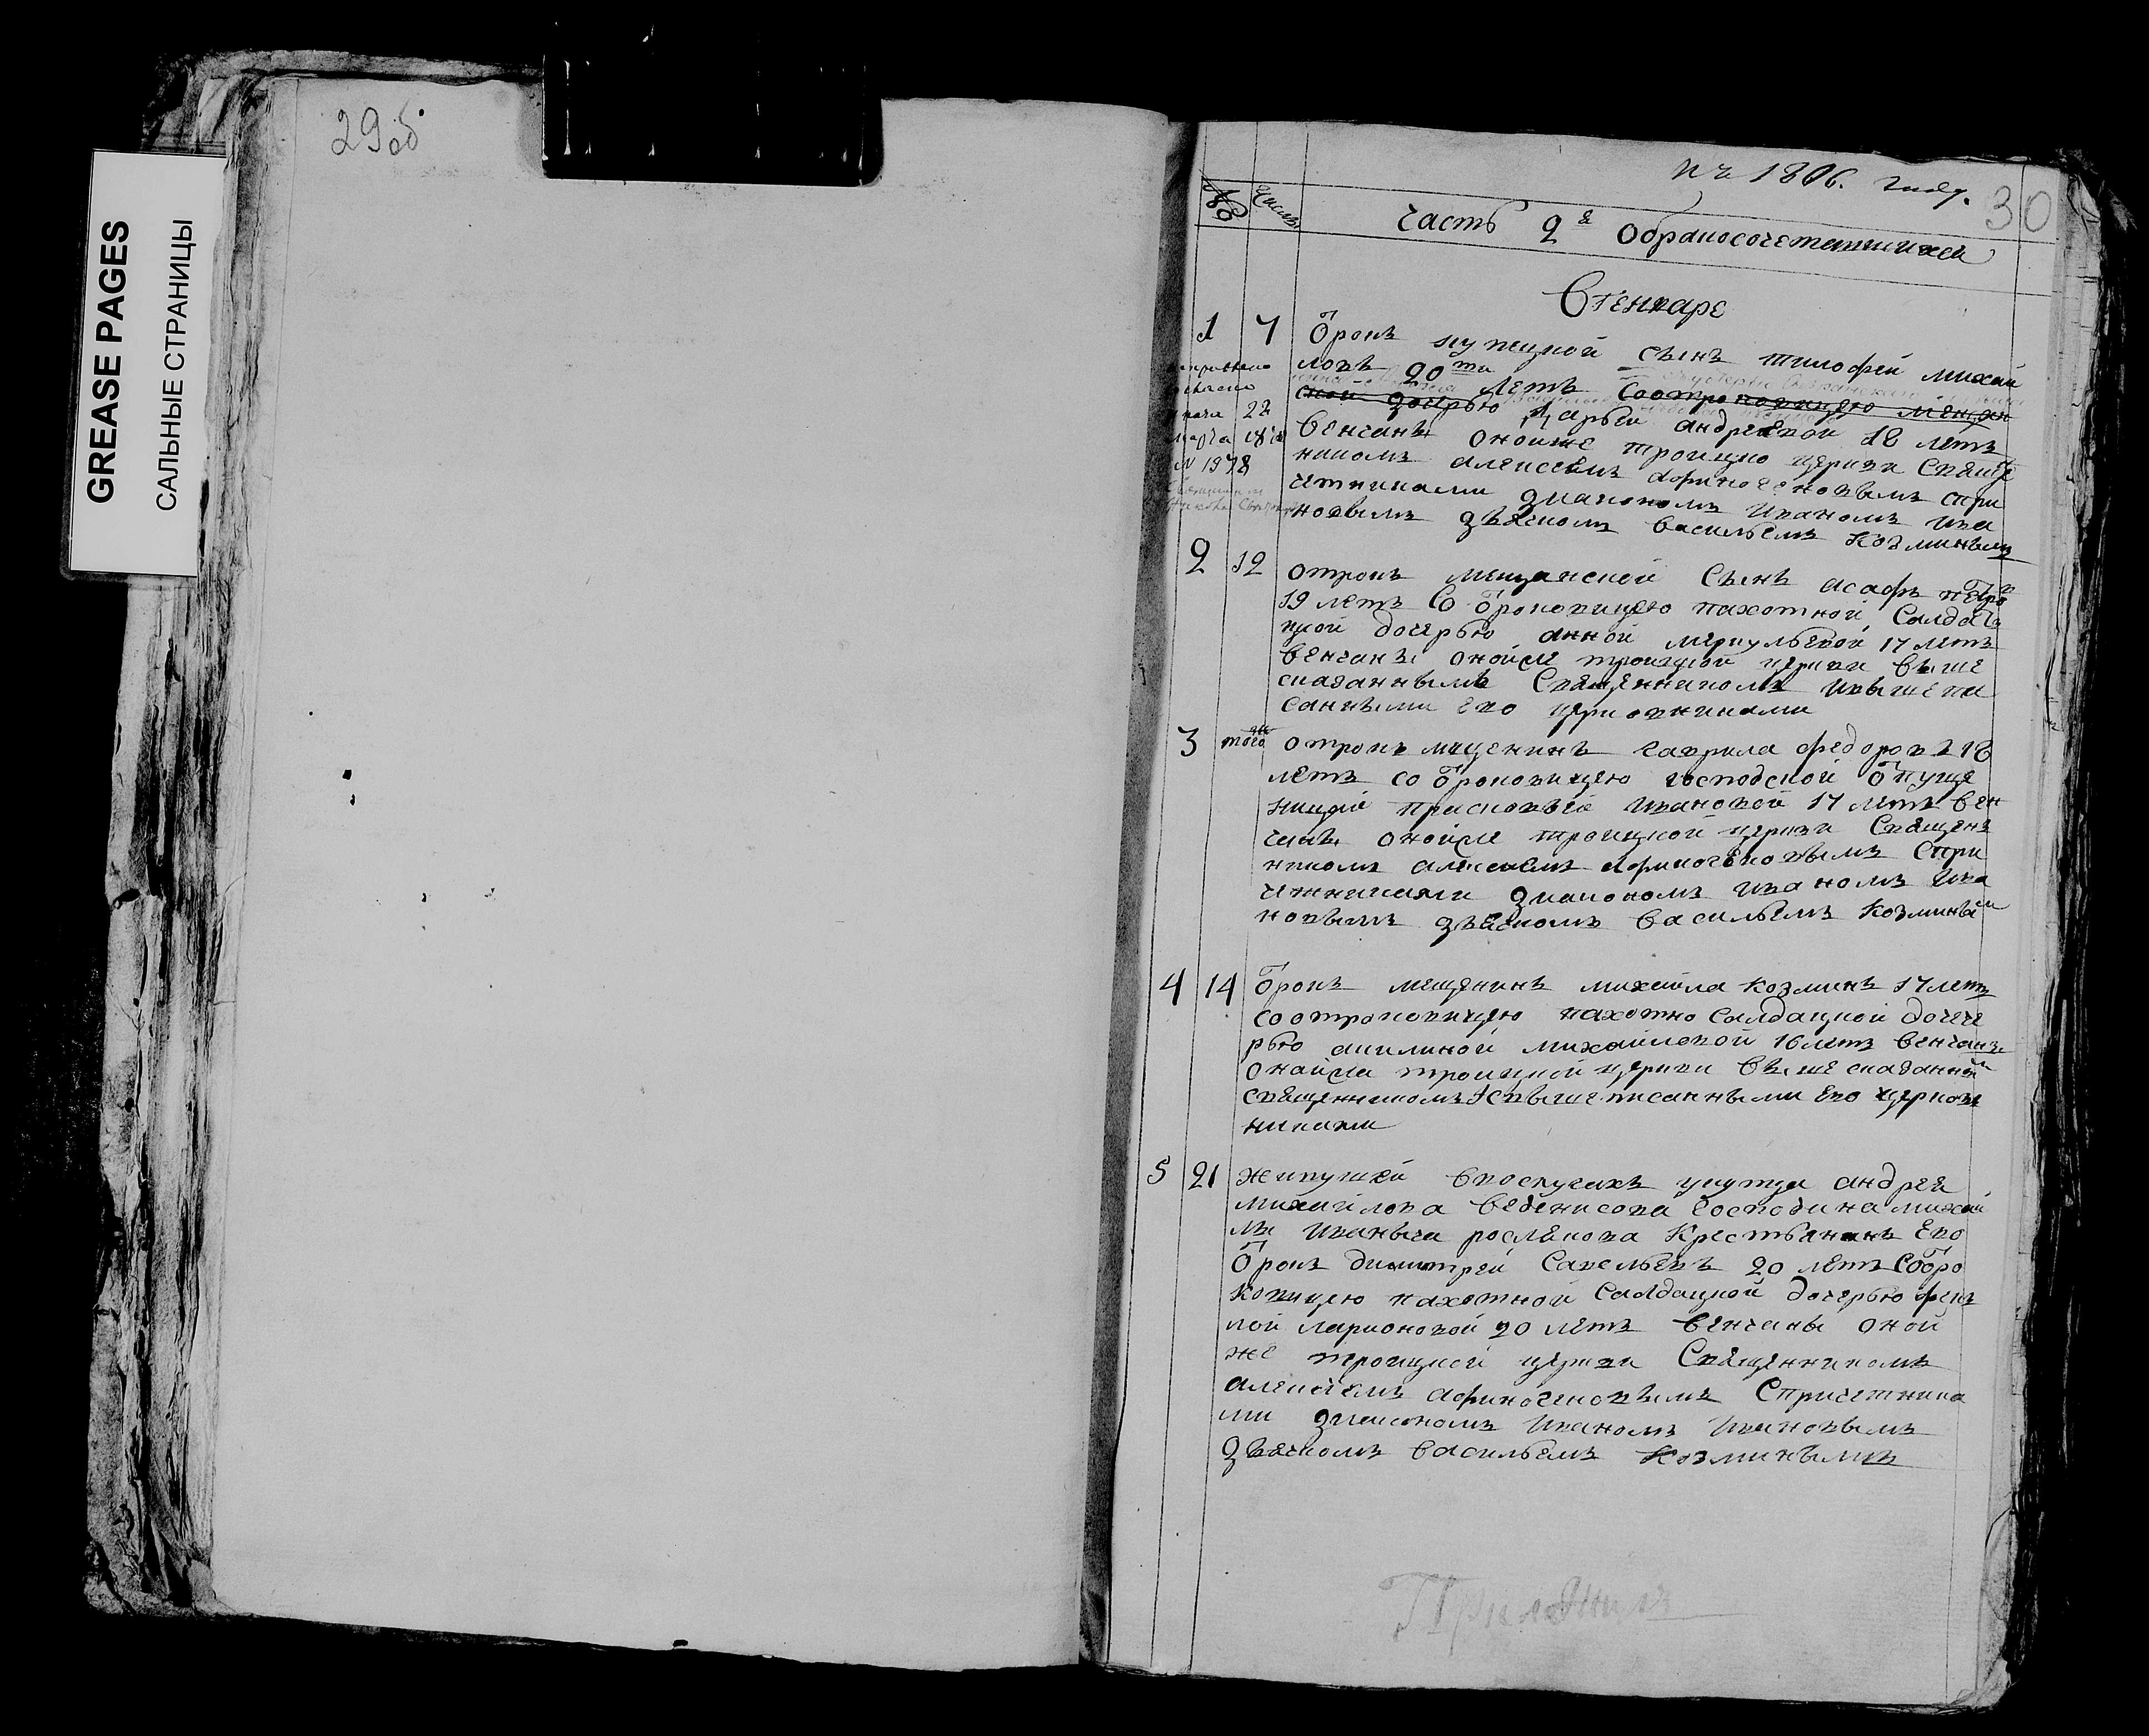 GREASE PAGES
САЛЬНЫЕ СТРАНИЦЫ
29об
въ 1806. году.
30
№
Числа
Часть 2я Обракосочетавшихся
Вгенваре
1 7 Отрокъ купецкой сынъ тимофей михаи
ловъ 20ти летъ Соотроковицею мещан
ской дочерью дарьей андреевой 18 летъ
венчаны онойже троицко церкви Свяще
никомъ алексеемъ афиногеновымъ спри
четниками диакономъ иваномъ ива
новымъ дьячкомъ васильемъ козминымъ
22
марта
№ 1978
2 12 отрокъ мещанской Сынъ асафъ петро
19 летъ Со отроковицею пахотной Салдат
цкой дочерью анной меркульевой 17 летъ
венчаны онойже троицкой церкви выше
сказаннымъ Священникомъ ивышепи
санными ево церковниками
3 того отрокъ мещенинъ гаврила федоровъ 18
летъ со отроковицею господской отпуще
ницей прасковьей ивановой 17 летъ вен
чаны онойже троицкой церкви Священ
никомъ алексеемъ афиногеновымъ спри
четниками диакономъ иваномъ ива
новымъ дьячкомъ васильемъ козминым
4 14 отрокъ мещенинъ михаила козминъ 17 летъ
соотроковицею пахотно салдацкой дочече
рью акилиной михайловой 16 летъ венчаны
онойже троицкой церкви выше сказанным
священникомъ Исвыше писанными ево церков
никами
5 21 живущей андрея
михайлова веденисова господина михаи
лы иваныча рославова крестьянинъ ево
отрокъ димитрей савельевъ 20 летъ соотро
ковицею пахотной салдацкой дочерью фек
лой ларионовой 20 летъ венчаны оной
же троицкой церкви Священникомъ
алексеемъ афиногеновымъ Спричетника
ми диакономъ иваномъ ивановымъ
дьячкомъ васильемъ козминымъ